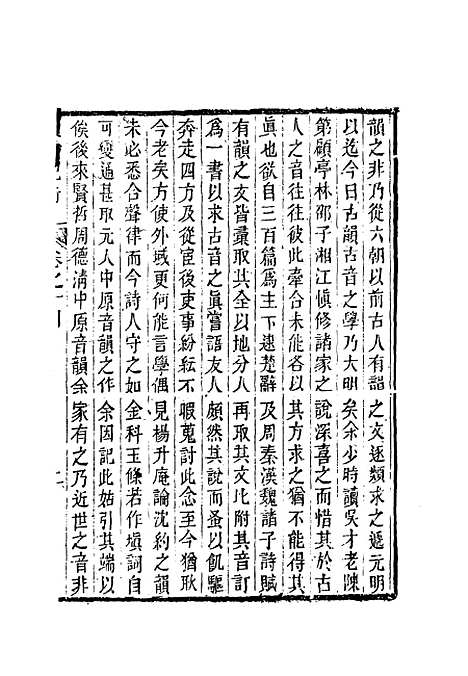 韻之非乃從六朝以前古人有韻之文逐類求之遞元明
以迄今日古韻古音之學乃大明矣余少時讀吳才老陳
第顧亭林邵子湘江愼修諸家之說深喜之而惜其於古
人之音往往彼此牽合未能各以其方求之猶不能得其
眞也欲自三百篇爲主下逮楚辭及周秦漢魏諸子詩賦
有韻之文皆彙取以地分人再取其文比附其音訂
爲一書以求古音之眞嘗語友人頗然其說而蚤以飢驅
奔走四方及從宦後吏事紛紜不暇蒐討此念至今猶耿
今老矣方使外域更何能言學偶見楊升庵論沈約之韻
未必悉合聲律而今詩人守之如金科玉條若作塡詞自
可變通甚取元人中原音韻之作余因記此始引其端以
俟後來賢哲周德淸中原音韻余家有之乃近世之音非